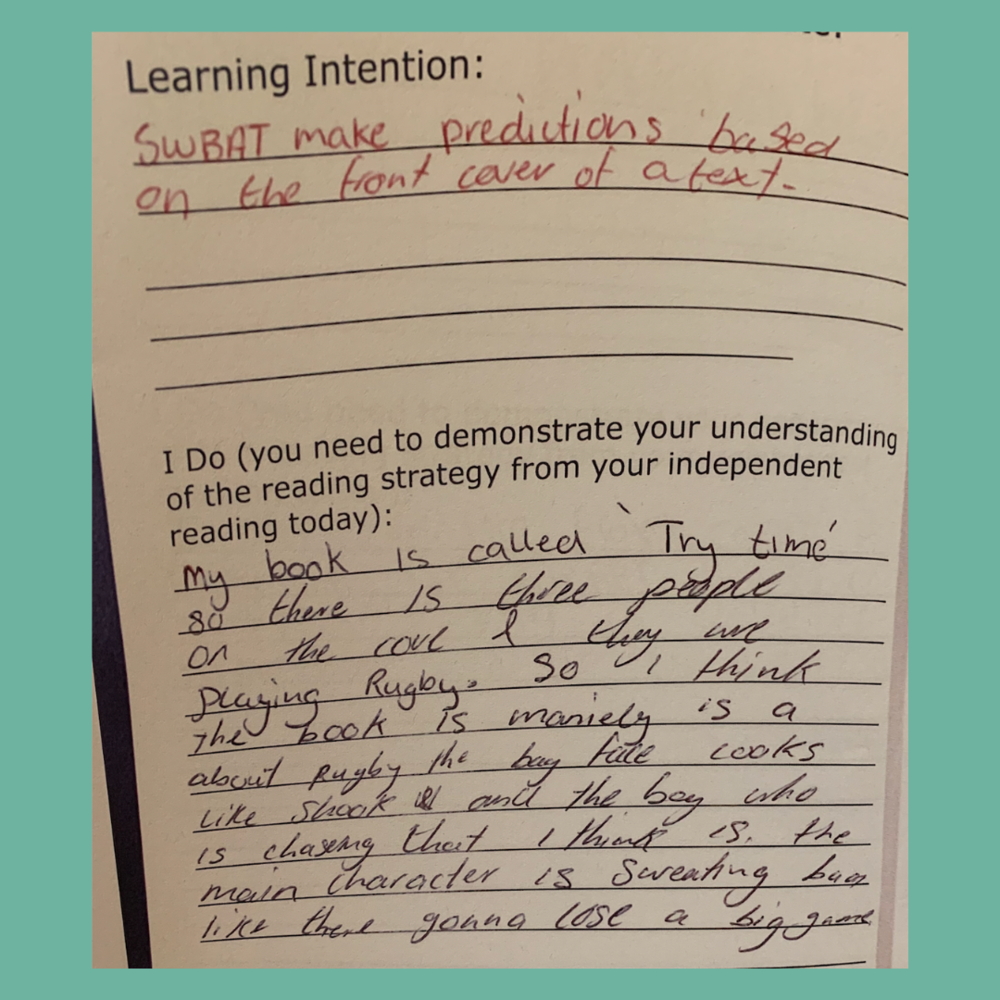 Learning Intention:
SWBAT make predictions based
on the front cover of a text.
I Do (you need to demonstrate your understanding
of the reading strategy from your independent
reading today):
My book is called 'Try time'
so there is three people
on the cove & they are
playing Rugby. So i think
The book is maniely is a
about Rugby the boy face looks
like shook and the boy who
is chaseing that I think is. the
main character is Sweating
like there gonna lose a big game